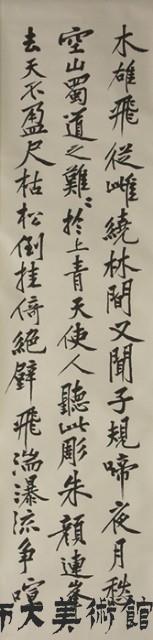 木雄飛從雌繞林間又聞子規啼夜月愁
空山蜀道之難〻於上青天使人聽此彫朱顏連峯
去天不盈尺枯松倒挂倚絕壁飛湍瀑流爭喧
師大美術館